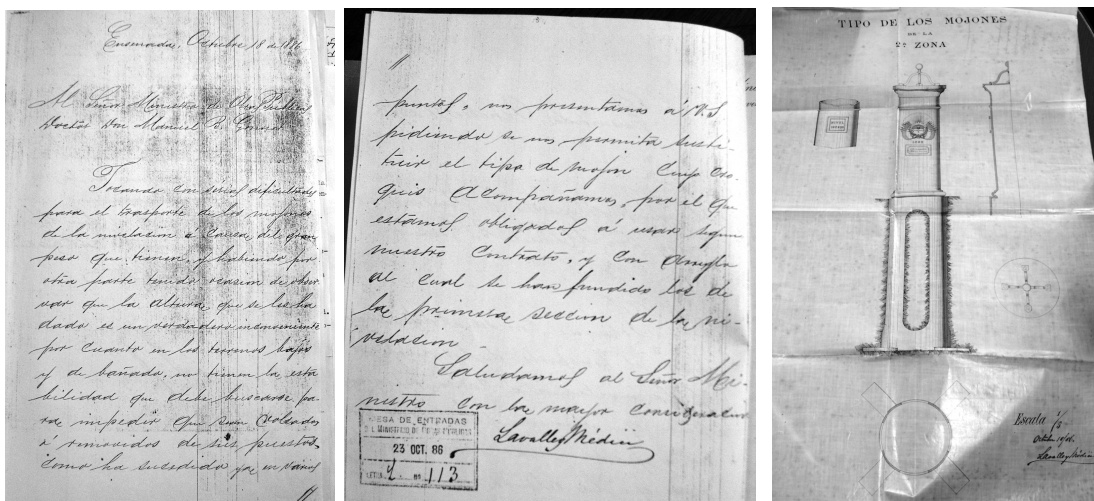 Ensenada, Octubre 18 de 1886
Al Señor Ministro de Obras Públicas
Doctor Don Manuel B. Gonnet
Tocando con serias dificultades
para el trasporte de los mojones
de la nivelacion a causa del gran
peso que tienen, y habiendo por
otra parte tenido ocasion de obser
var que la altura que se les ha
dado es un verdadero inconveniente
por cuanto en los terrenos bajos
y de bañado, no tienen la esta
bilidad que debe buscarse pa
ra impedir que sean volcados
ó removidos de sus puestos,
como ha sucedido ya en varios
//
//
puntos, nos presentamos á V.S
pidiendo se nos permita susti-
tuir el tipo de mojon cuyo cro-
quis acompañamos, por el que
estamos obligados á usar segun
nuestro contrato, y con arreglo
al cual se han fundido los de
la primera seccion de la ni-
velacion
Saludamos al Señor Mi-
nistro con la mayor consideracion
Lavalley Médici
MESA DE ENTRADAS
DEL MINISTERIO DE OBRAS PUBLICAS
23 OCT. 86
LETRA L No 113
TIPO DE LOS MOJONES
DE LA
2ª ZONA
1886
Escala 1/5
Octubre 18/86
Lavalley Médici